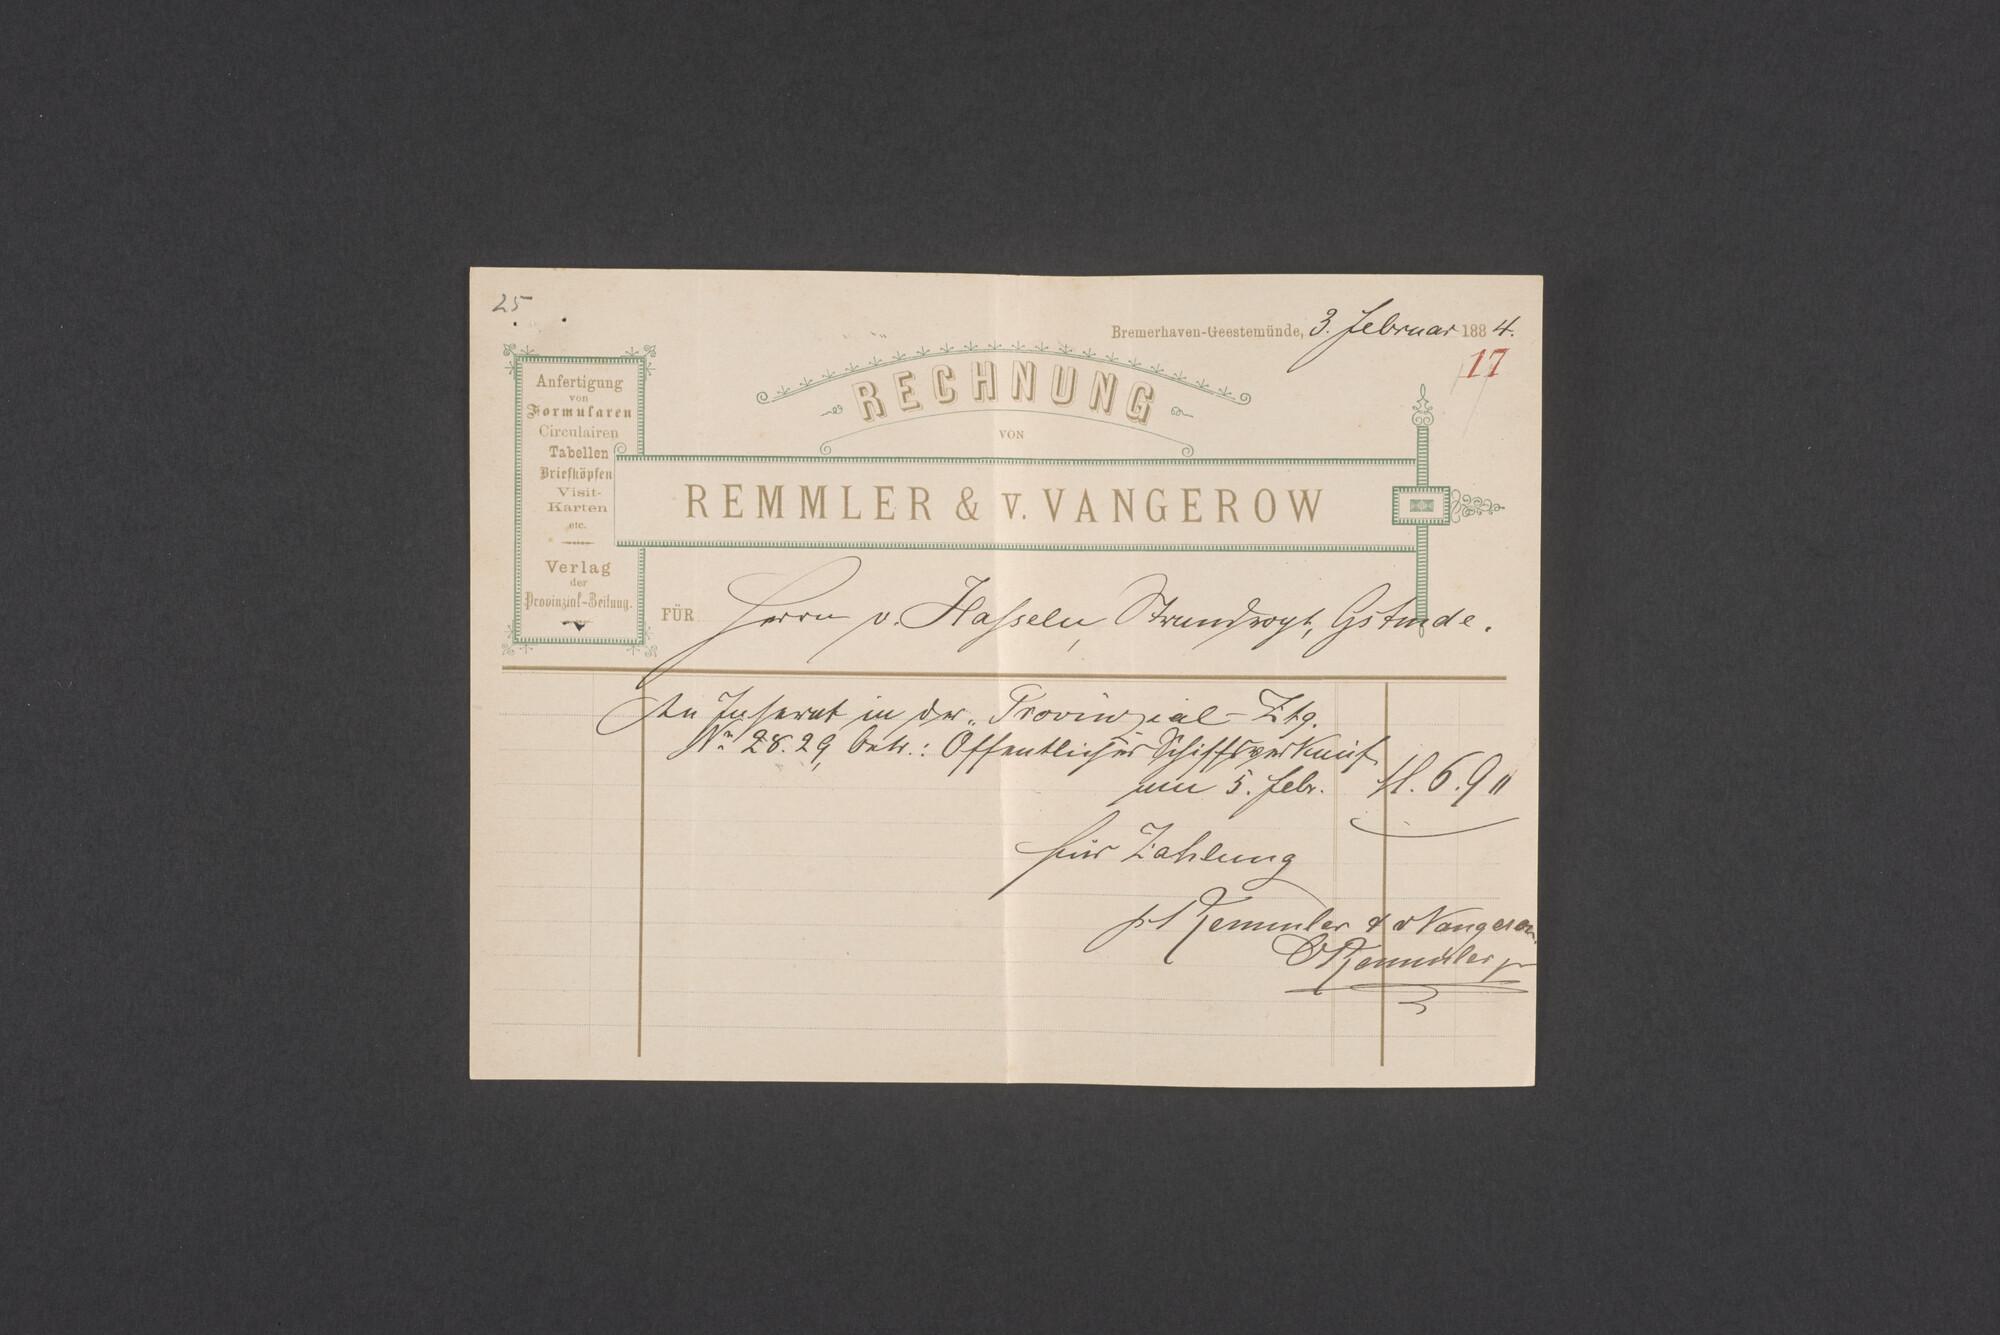 25.
Bremerhaven-Geestemünde, 3. Februar 1884.
17
RECHNUNG
VON
REMMLER & v. VANGEROW
Anfertigung
von
Formularen
Circulairen
Tabellen
Briefköpfen
Visit-
Karten
etc.
Verlag
der
Provinzial-Zeitung.
FÜR Herrn v. Hasseln, Strandvogt, Gstmde.
An Inserat in der „Provinzial-Ztg.
No 28. 29, betr.: Öffentlicher Schiffsverkauf
am 5. Febr. M. 6.9
für Zahlung
Remmler & v Vangerow
Remmler jr